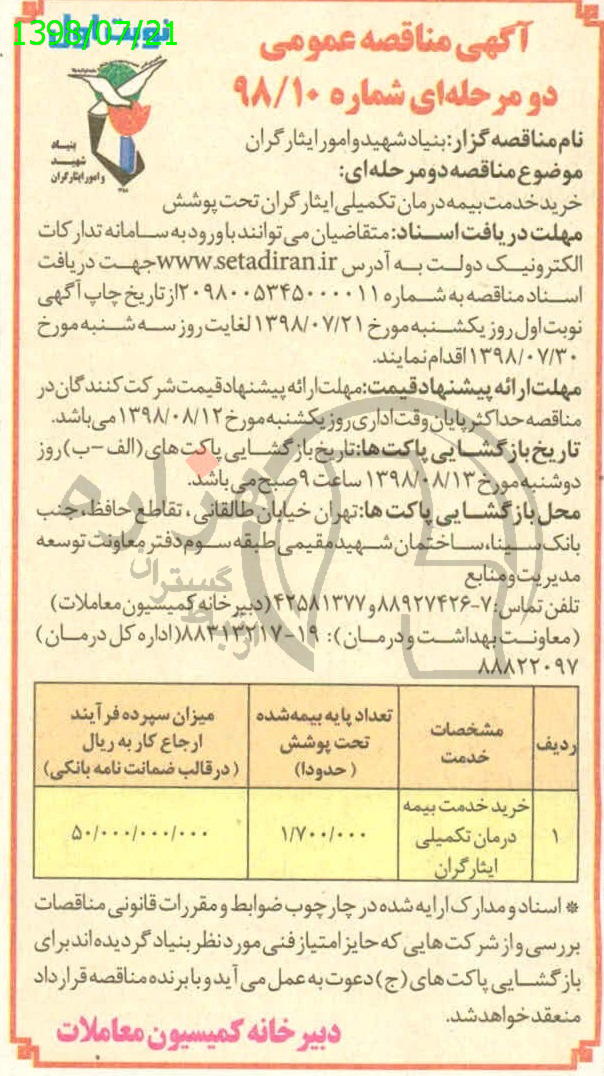 نوبت اول
1398/07/21
آگهی مناقصه عمومی
دو مرحله‌ای شماره ۹۸/۱۰
بنیاد
شهید
و امور ایثارگران
نام مناقصه گزار: بنیاد شهید و امور ایثارگران
موضوع مناقصه دو مرحله‌ای:
خرید خدمت بیمه درمان تکمیلی ایثارگران تحت پوشش
مهلت دریافت اسناد: متقاضیان می توانند با ورود به سامانه تدارکات
الکترونیک دولت به آدرس www.setadiran.ir جهت دریافت
اسناد مناقصه به شماره ۲۰۹۸۰۰۵۳۴۵۰۰۰۰۱۱ از تاریخ چاپ آگهی
نوبت اول روز یکشنبه مورخ ۱۳۹۸/۰۷/۲۱ لغایت روز سه شنبه مورخ
۱۳۹۸/۰۷/۳۰ اقدام نمایند.
مهلت ارائه پیشنهاد قیمت: مهلت ارائه پیشنهاد قیمت شرکت کنندگان در
مناقصه حداکثر پایان وقت اداری روز یکشنبه مورخ ۱۳۹۸/۰۸/۱۲ می باشد.
تاریخ بازگشایی پاکت ها: تاریخ بازگشایی پاکت های (الف - ب) روز
دوشنبه مورخ ۱۳۹۸/۰۸/۱۳ ساعت ۹ صبح می باشد.
محل بازگشایی پاکت ها: تهران خیابان طالقانی، تقاطع حافظ، جنب
بانک سینا، ساختمان شهید مقیمی طبقه سوم دفتر معاونت توسعه
مدیریت و منابع
تلفن تماس: ۷-۸۸۹۲۷۴۲۶ و ۴۲۵۸۱۳۷۷ (دبیرخانه کمیسیون معاملات)
(معاونت بهداشت و درمان): ۱۹-۸۸۳۱۳۲۱۷ (اداره کل درمان)
۸۸۸۲۲۰۹۷
ردیف
مشخصات
خدمت
تعداد پایه بیمه شده
تحت پوشش
(حدودا)
میزان سپرده فرآیند
ارجاع کار به ریال
(در قالب ضمانت نامه بانکی)
۱
خرید خدمت بیمه
درمان تکمیلی
ایثارگران
۱/۷۰۰/۰۰۰
۵۰/۰۰۰/۰۰۰/۰۰۰
* اسناد و مدارک ارایه شده در چارچوب ضوابط و مقررات قانونی مناقصات
بررسی و از شرکت هایی که حایز امتیاز فنی مورد نظر بنیاد گردیده اند برای
بازگشایی پاکت های (ج) دعوت به عمل می آید و با برنده مناقصه قرارداد
منعقد خواهد شد.
دبیرخانه کمیسیون معاملات